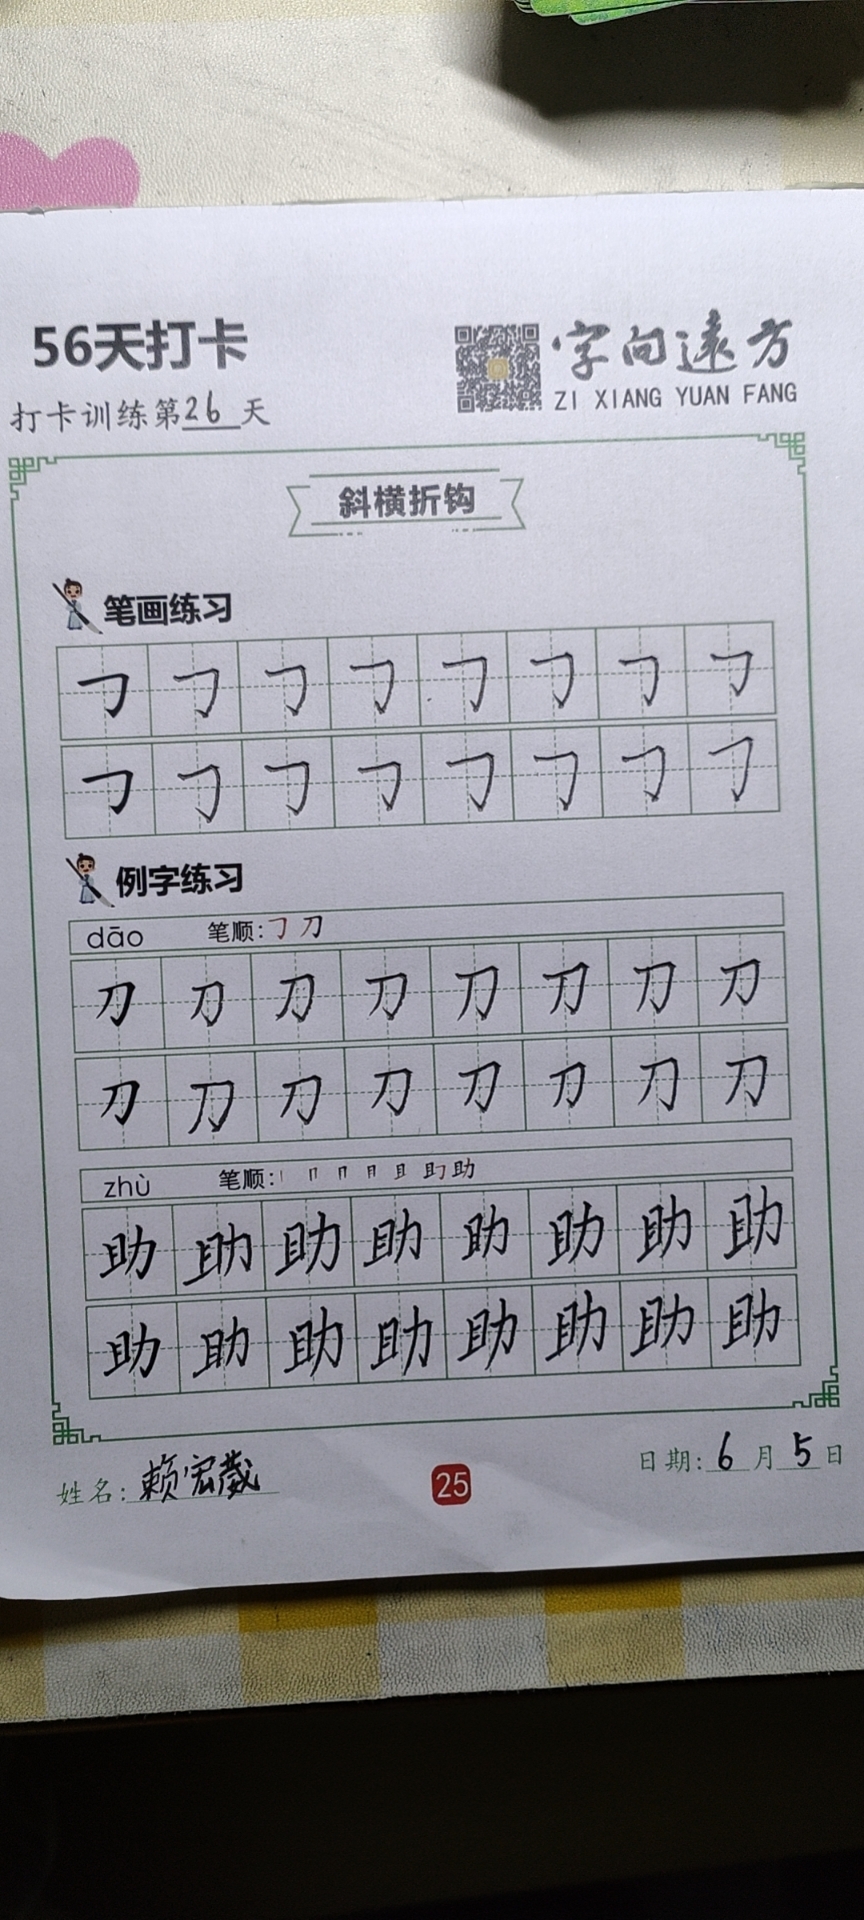 56天打卡
字向远方
ZI XIANG YUAN FANG
打卡训练第26天
斜横折钩
笔画练习
㇆㇆㇆㇆㇆㇆㇆㇆
㇆㇆㇆㇆㇆㇆㇆㇆
例字练习
dāo 笔顺:㇆刀
刀刀刀刀刀刀刀刀
刀刀刀刀刀刀刀刀
zhù 笔顺:
助助助助助助助助
助助助助助助助助
姓名:赖宏葳
25
日期:6月5日